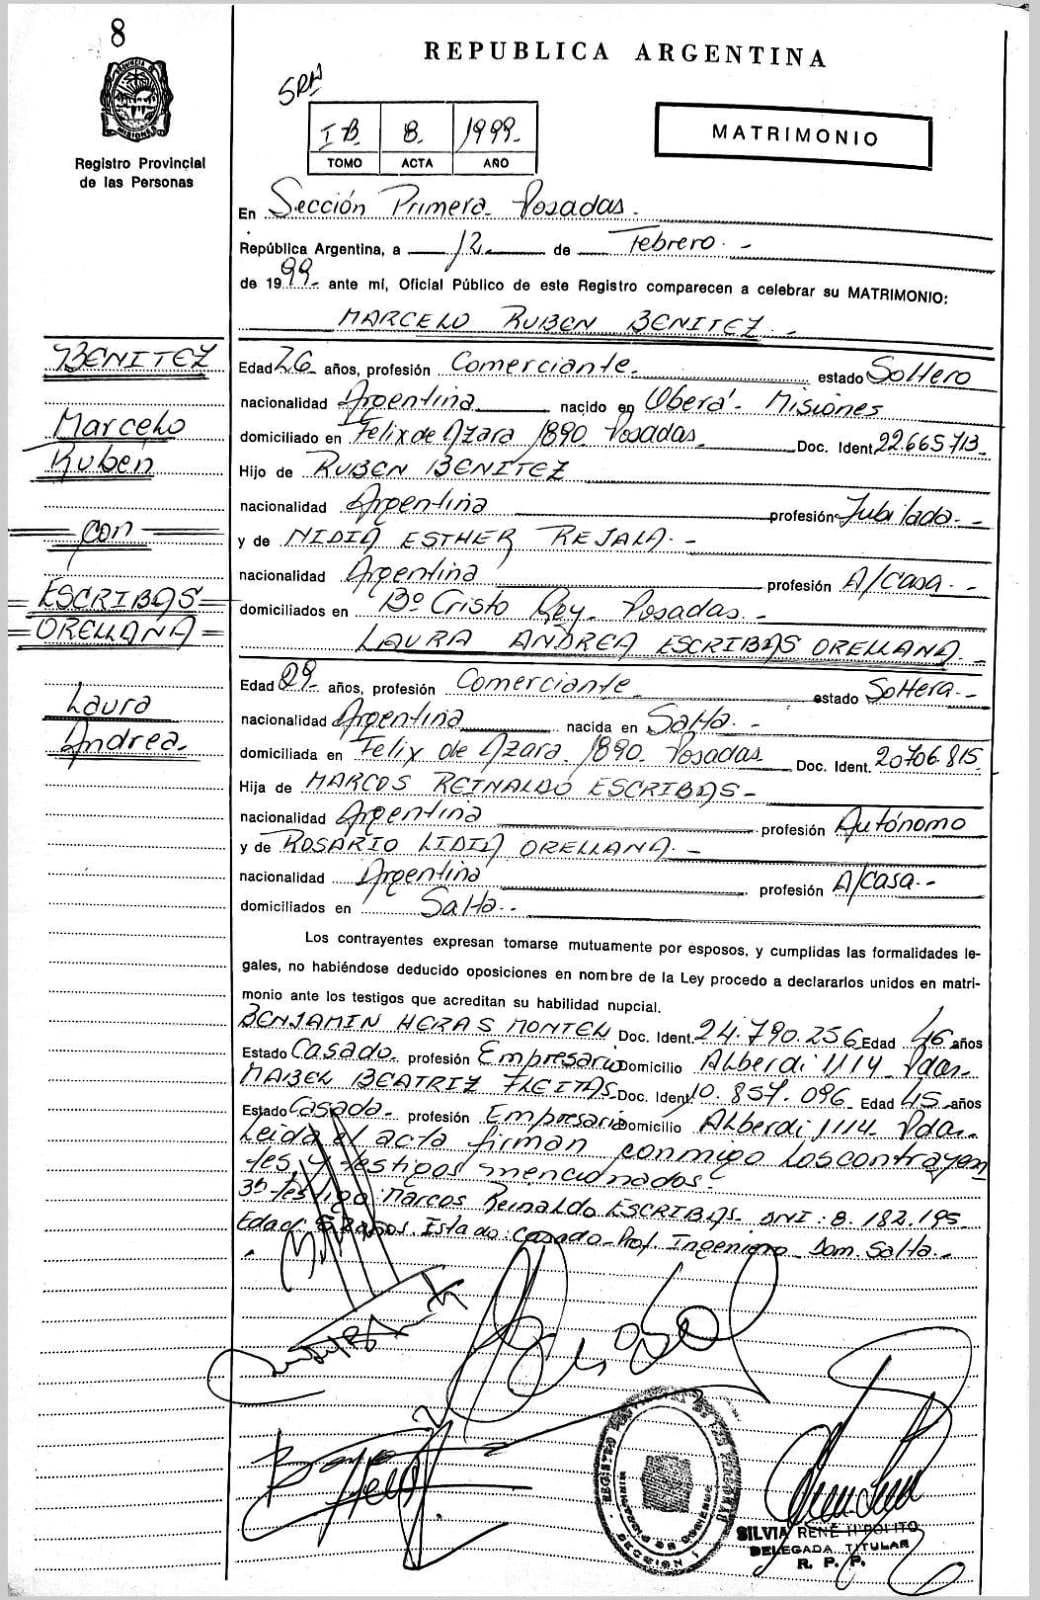 8
REPUBLICA ARGENTINA
I B. 8. 1999.
TOMO ACTA AÑO
MATRIMONIO
Registro Provincial
de las Personas
En Sección Primera Posadas.
República Argentina, a 12 de Febrero. -
de 1999. ante mí, Oficial Público de este Registro comparecen a celebrar su MATRIMONIO:
MARCELO RUBEN BENITEZ. -
BENITEZ
Marcelo
Ruben
con
ESCRIBAS
ORELLANA
Laura
Andrea.
Edad 26 años, profesión Comerciante. estado Soltero
nacionalidad Argentina nacido en Oberá - Misiones
domiciliado en Felix de Azara 1890. Posadas. Doc. Ident. 22.665.713.
Hijo de RUBEN BENITEZ
nacionalidad Argentina profesión Jubilado. -
y de NIDIA ESTHER REJALA. -
nacionalidad Argentina profesión A/Casa. -
domiciliados en Bº Cristo Rey. Posadas. -
LAURA ANDREA ESCRIBAS ORELLANA. -
Edad 29 años, profesión Comerciante estado Soltera. -
nacionalidad Argentina nacida en Salta. -
domiciliada en Felix de Azara. 1890. Posadas Doc. Ident. 20.706.815.
Hija de MARCOS REINALDO ESCRIBAS -
nacionalidad Argentina profesión Autónomo
y de ROSARIO LIDIA ORELLANA. -
nacionalidad Argentina profesión A/Casa. -
domiciliados en Salta. -
Los contrayentes expresan tomarse mutuamente por esposos, y cumplidas las formalidades le-
gales, no habiéndose deducido oposiciones en nombre de la Ley procedo a declararlos unidos en matri-
monio ante los testigos que acreditan su habilidad nupcial.
BENJAMIN HERAS Doc. Ident. 24.790.256 Edad 46 años
Estado Casado. profesión Empresario Domicilio Alberdi 1114 Pdas.
MABEL BEATRIZ FLEITAS. Doc. Ident. 10.857.096 Edad 45 años
Estado Casada. profesión Empresaria Domicilio Alberdi 1114 Pdas.
Leida el acta firman conmigo los contrayen
tes y testigos mencionados. -
3er testigo: Marcos Reinaldo ESCRIBAS. DNI: 8.182.195
Edad: años. Estado: Casado. Prof. Ingeniero. Dom. Salta. -
SILVIA RENE HIPOLITO
DELEGADA TITULAR
R. P. P.